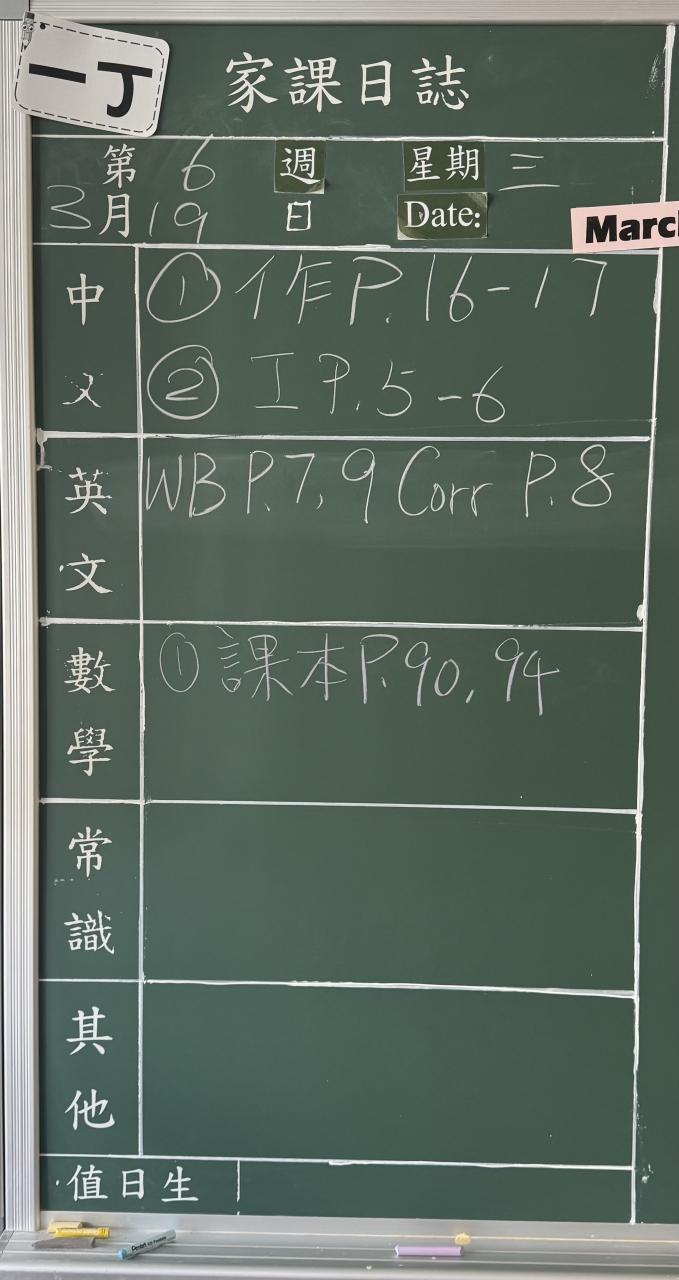 一丁
家課日誌
第 6 週 星期 三
3月19日 Date: Marc
中文
① 作 P.16-17
② 工 P.5-6
英文
WB P.7,9 Corr P.8
數學
① 課本 P.90,94
常識
其他
值日生